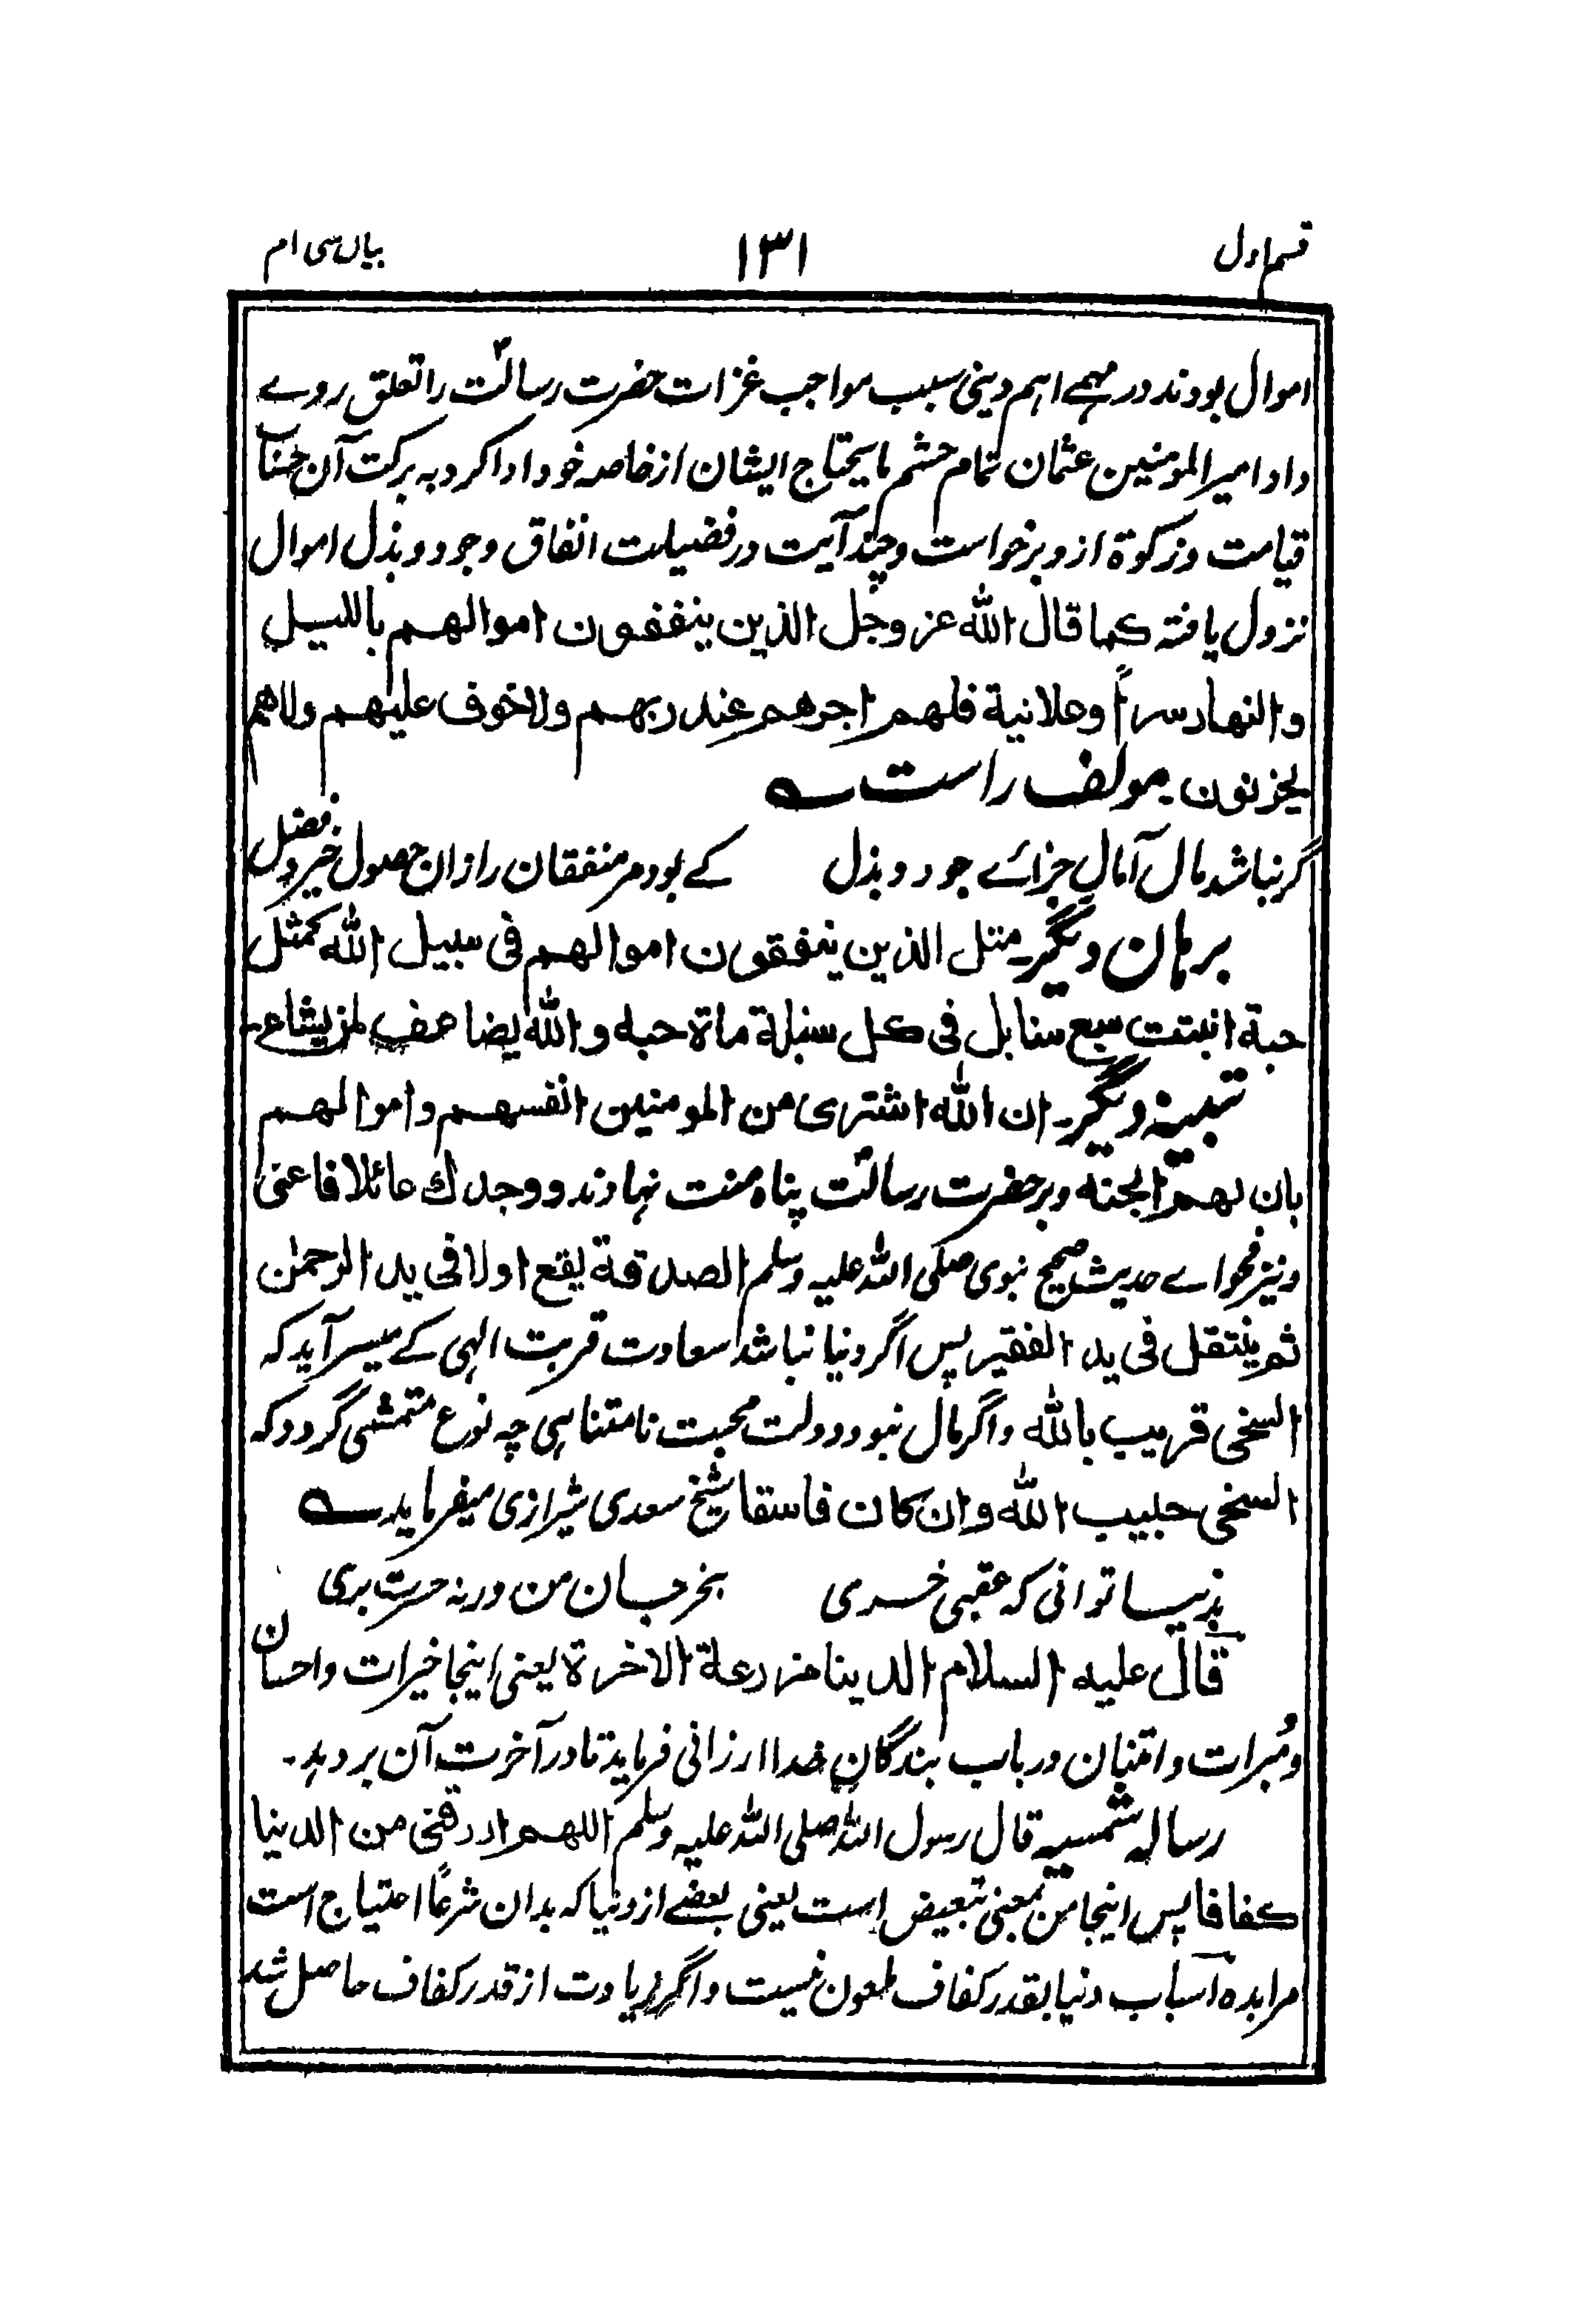 قسم اول ۱۳۱ بیان سی ام
اموال بودند در مہمے اہم دینی سبب مواجب غزات حضرت رسالتؐ را تعلق روے
داد امیر المومنین عثمان تمام حشم مایحتاج ایشان از خاصہ خود ادا کرد بہ برکت آن حسنات
قیامت و زکوٰۃ از و برخواست و چند آیت در فضیلت انفاق و جود و بذل اموال
نزول یافتہ کما قال اللہ عز وجل الذین ینفقون اموالهم باللیل
والنهار سراً وعلانیة فلهم اجرهم عند ربهم ولاخوف علیهم ولاهم
یحزنون ۔ مولف راست ؎
گر نباشد مال آمال جزائے جود و بذل کے بود مر منفقان را زان حصول خیر و فضل
برہان دیگر ۔ مثل الذین ینفقون اموالهم فی سبیل اللہ کمثل
حبة انبتت سبع سنابل فی کل سنبلة ماة حبه واللہ یضاعف لمن یشاء ۔
تنبیہ دیگر ۔ ان اللہ اشتری من المومنین انفسهم واموالهم
بان لهم الجنه و بر حضرت رسالتؐ پناہ منت نہادند ووجدك عائلا فاغنی
و نیز فحواے حدیث صحیح نبوی صلی اللہ علیہ وسلم الصدقة یقع اولا فی ید الرحمٰن
ثم ینتقل فی ید الفقیر پس اگر دنیا نباشد سعادت قربت الٰہی کے میسر آید کہ
السخی قریب باللہ و اگر مال نبود دولت محبت نامتناہی چہ نوع متمشی گردد کہ
السخی حبیب اللہ وان کان فاسقا شیخ سعدی شیرازی میفرماید ؎
بدنیا توانی کہ عقبی خری بخر جان من ورنہ حسرت بری
قال علیه السلام الدینا مزرعة الاخرة یعنی اینجا خیرات و احسان
و مُبرات و امتنان در باب بندگان خدا ارزانی فرماید تا در آخرت آن بر دہد ۔
رسالہ شمسیہ قال رسول اللہ صلی اللہ علیہ وسلم اللهم ارزقنی من الدنیا
کفافا پس اینجا من بمعنی تبعیض است یعنی بعضے از دنیا کہ بدان شرعاً احتیاج است
مرا بدہ اسباب دنیا بقدر کفاف ملعون نیست و اگر زیادت از قدر کفاف حاصل شد